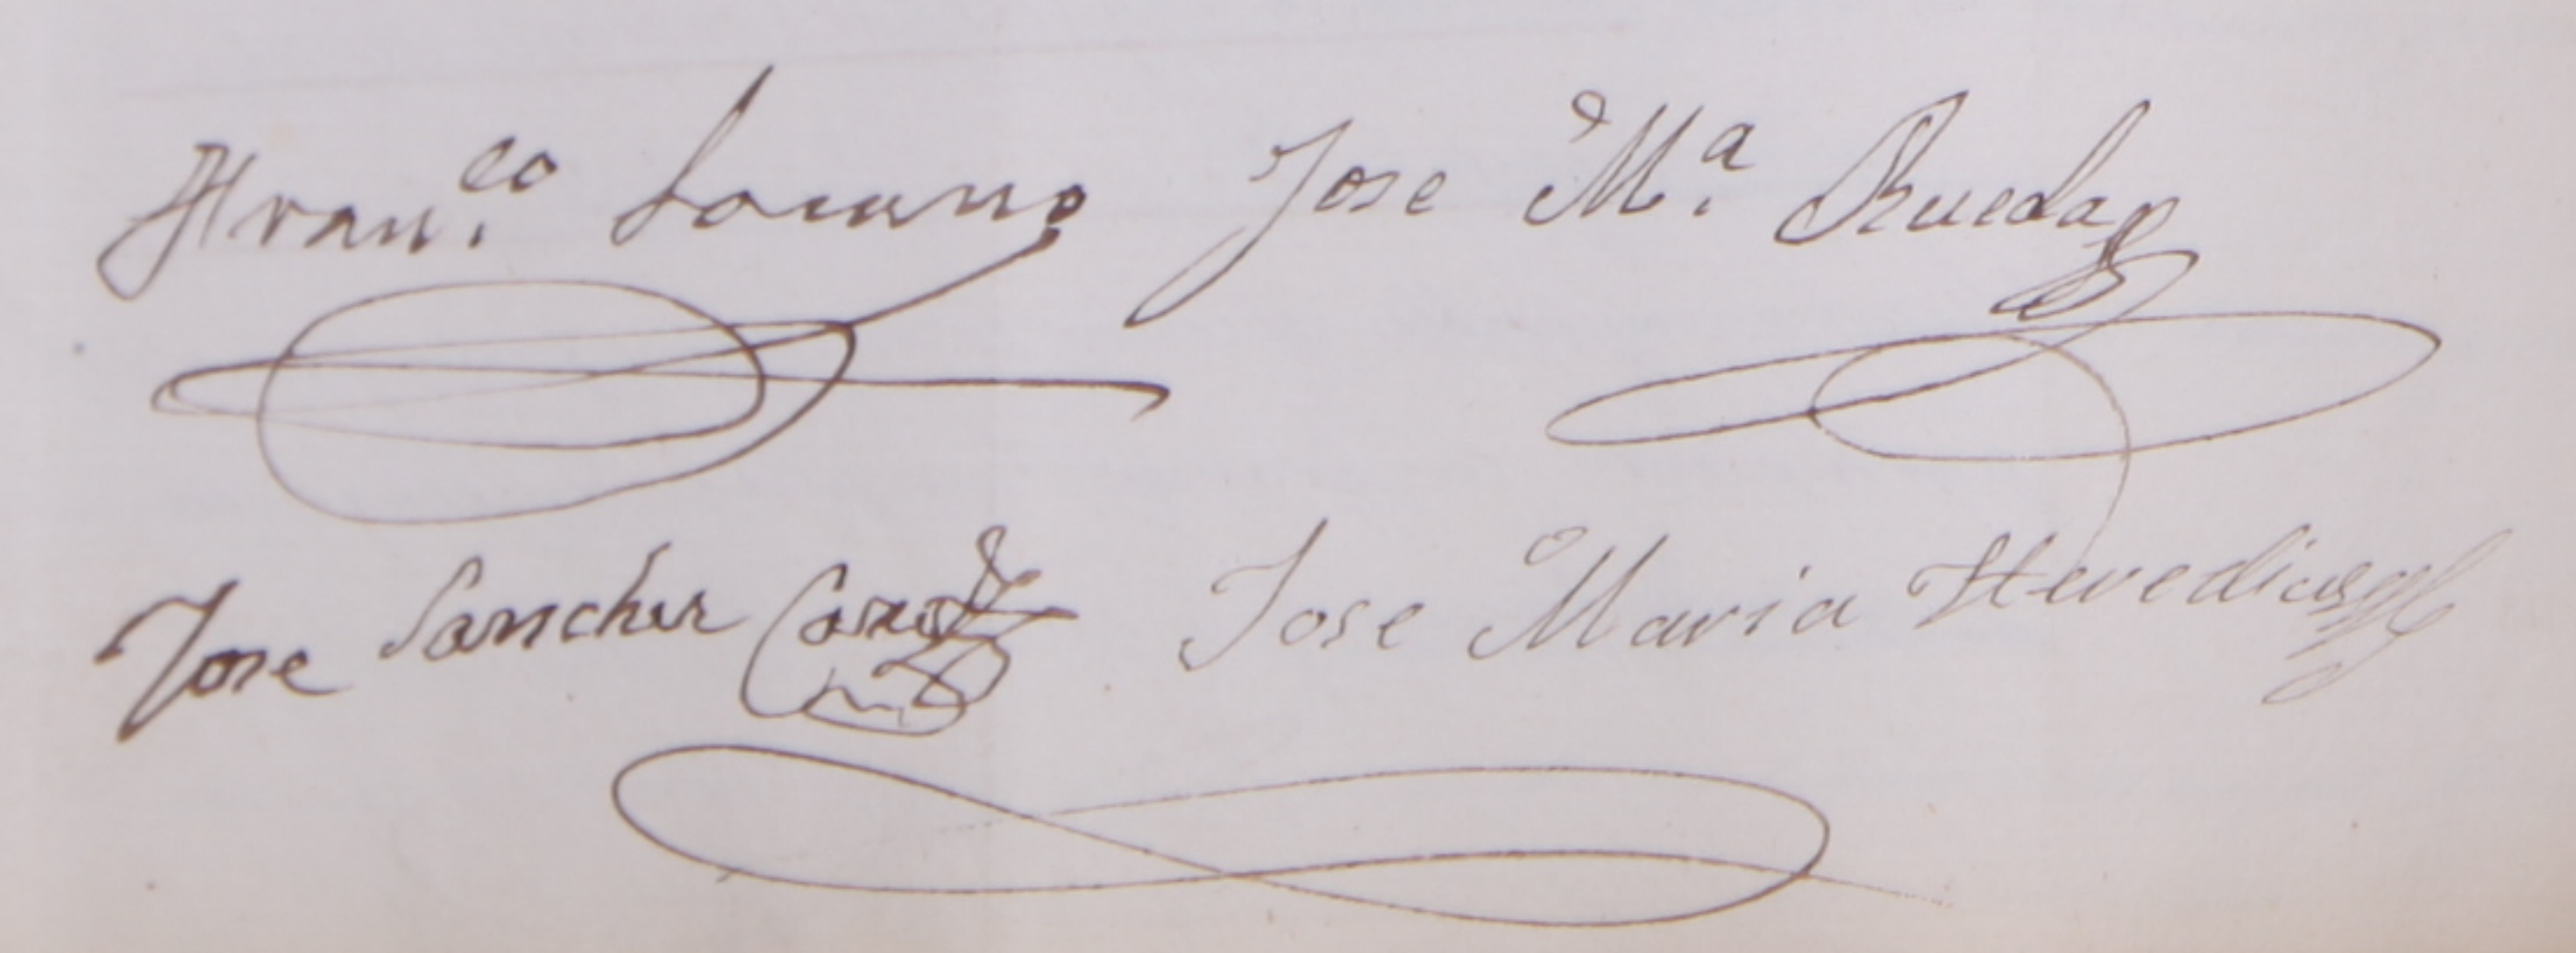 Fran.co Locano Jose M.a Rueda
Jose Sanchez Jose Maria Heredia